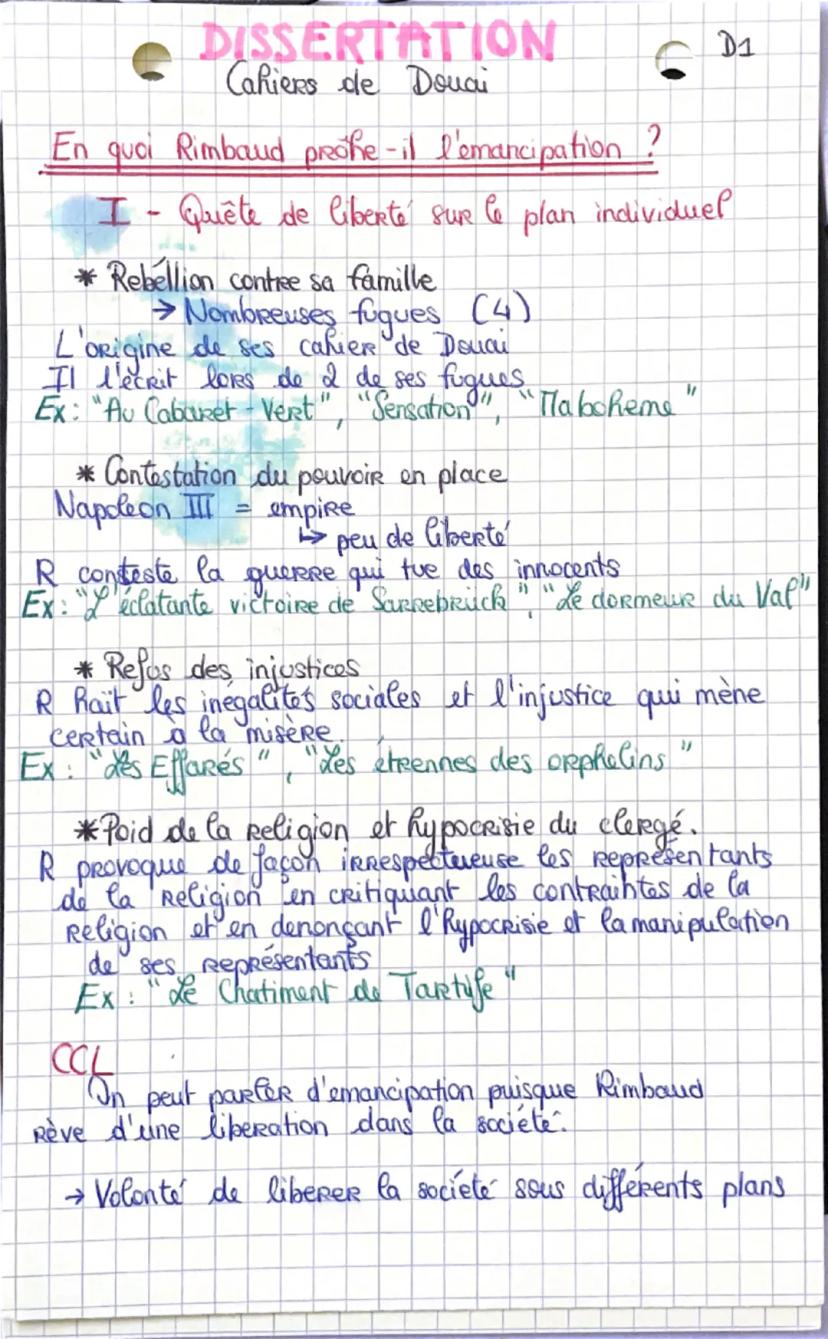 DISSERTATION
D1
Cahiers de Douai
En quoi Rimbaud prône-il l'emancipation ?
I - Quête de liberté sur le plan individuel
* Rebéllion contre sa famille
→ Nombreuses fugues (4)
L'origine de ses cahier de Douai
Il l'écrit lors de 2 de ses fugues
Ex : "Au Cabaret-Vert", "Sensation", "Ma boheme"
* Contestation du pouvoir en place
Napoleon III = empire
↳ peu de liberté
R conteste la guerre qui tue des innocents
Ex : "L'éclatante victoire de Sarrebrück", "Le dormeur du Val"
* Refus des injustices
R hait les inégalités sociales et l'injustice qui mène
certain a la misère.
Ex : "Les Effarés", "Les étrennes des orphelins"
* Poid de la religion et hypocrisie du clergé.
R provoque de façon irrespectueuse les représentants
de la religion en critiquant les contraintes de la
religion et en denonçant l'hypocrisie et la manipulation
de ses représentants
Ex : "Le Chatiment de Tartufe"
CCL
On peut parler d'emancipation puisque Rimbaud
rêve d'une liberation dans la société.
→ Volonté de liberer la société sous différents plans